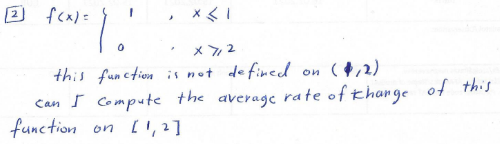 [2] f(x) = { 1 , x ⩽ 1
0 , x ⩾ 2
this function is not defined on (1,2)
can I compute the average rate of change of this
function on [1,2]